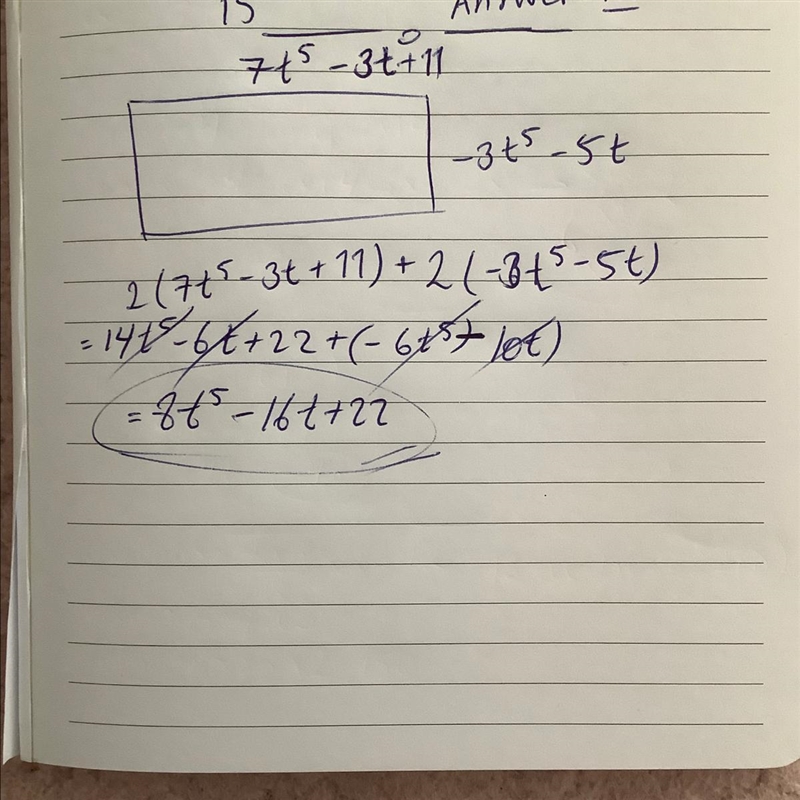 15
7t⁵ - 3t + 11
-3t⁵ - 5t
2(7t⁵ - 3t + 11) + 2(-3t⁵ - 5t)
= 14t⁵ - 6t + 22 + (-6t⁵ - 10t)
= 8t⁵ - 16t + 22